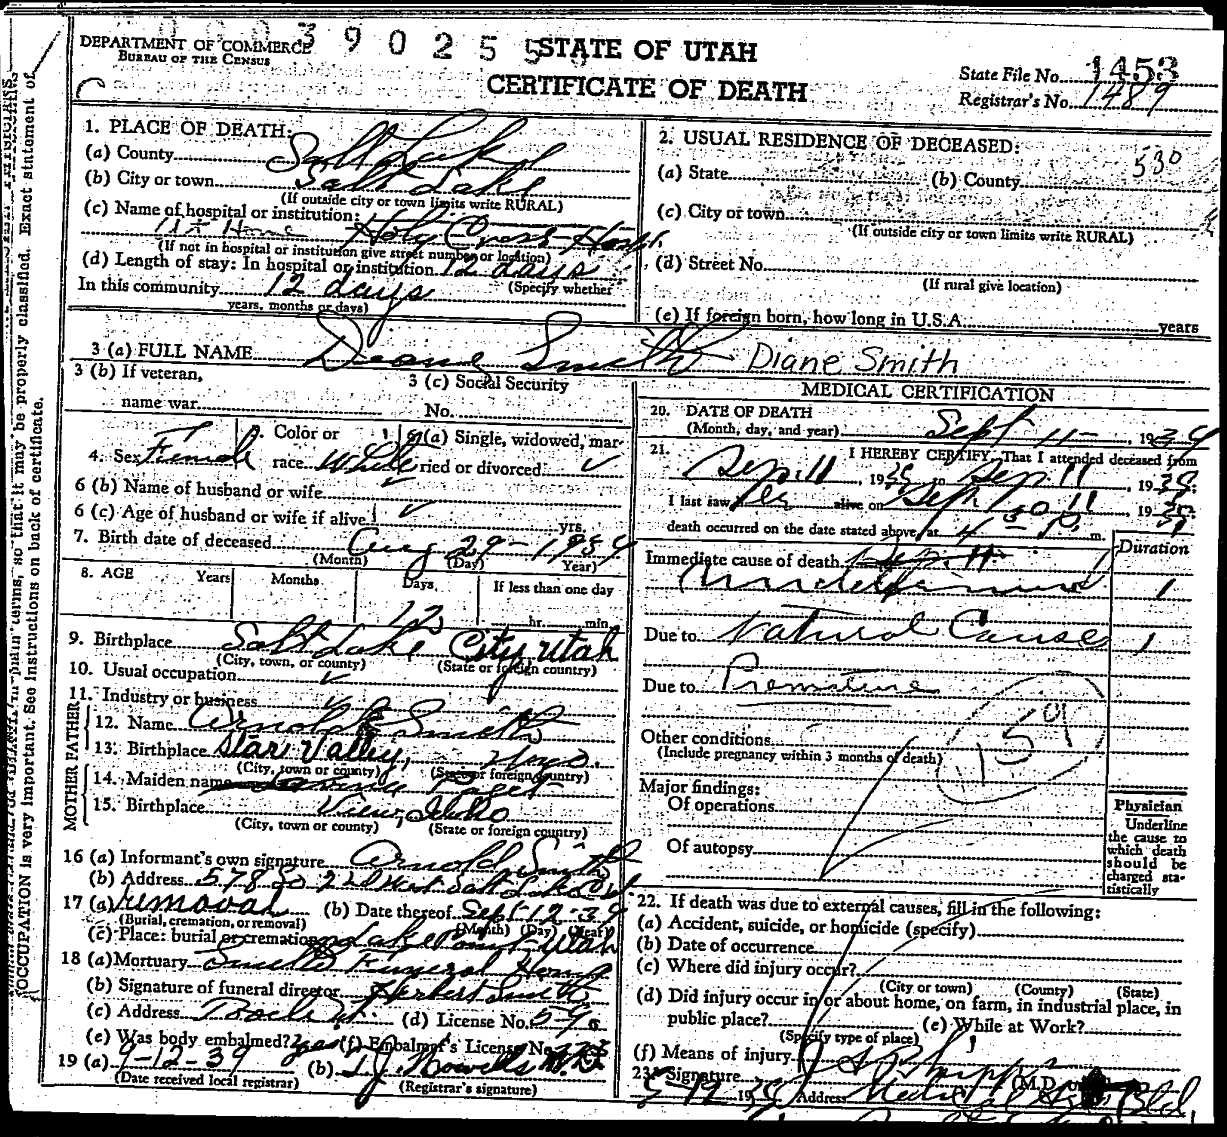 39025
DEPARTMENT OF COMMERCE
BUREAU OF THE CENSUS
STATE OF UTAH
CERTIFICATE OF DEATH
State File No. 1453
Registrar's No. 1489
1. PLACE OF DEATH:
(a) County Salt Lake
(b) City or town Salt Lake
(If outside city or town limits write RURAL)
(c) Name of hospital or institution:
Holy Cross Hosp.
(If not in hospital or institution give street number or location)
(d) Length of stay: In hospital or institution 12 days
(Specify whether
In this community 12 days
years, months or days)
2. USUAL RESIDENCE OF DECEASED:
530
(a) State (b) County
(c) City or town
(If outside city or town limits write RURAL)
(d) Street No.
(If rural give location)
(e) If foreign born, how long in U.S.A. years
3 (a) FULL NAME Diane Smith Diane Smith
3 (b) If veteran,
name war
3 (c) Social Security
No.
4. Sex Female
5. Color or
race White
6 (a) Single, widowed, mar-
ried or divorced ✓
6 (b) Name of husband or wife ✓
6 (c) Age of husband or wife if alive ✓ yrs.
7. Birth date of deceased Aug 29 - 1939
(Month) (Day) Year)
8. AGE Years Months Days If less than one day
12 hr. min.
9. Birthplace Salt Lake City Utah
(City, town, or county) (State or foreign country)
10. Usual occupation ✓
11. Industry or business
FATHER
12. Name Arnold Smith
13. Birthplace Star Valley, Wyo.
(City, town or county) (State or foreign country)
MOTHER
14. Maiden name Paget
15. Birthplace View, Idaho
(City, town or county) (State or foreign country)
16 (a) Informant's own signature Arnold Smith
(b) Address 578 So 2nd West Salt Lake
17 (a) removal (b) Date thereof Sept-12-39
(Burial, cremation, or removal) (Month) (Day) (Year)
(c) Place: burial or cremation Lake Point Utah
18 (a) Mortuary Funeral Home
(b) Signature of funeral director Herbert Smith
(c) Address (d) License No. 59
(e) Was body embalmed? yes (f) Embalmer's License No.
19 (a) 9-12-39 (b) T.J. Howells M.D.
(Date received local registrar) (Registrar's signature)
MEDICAL CERTIFICATION
20. DATE OF DEATH
(Month, day, and year) Sept 11 - , 1939
21. I HEREBY CERTIFY, That I attended deceased from
Sep. 11, 1939 to Sep. 11, 1939
I last saw her alive on Sep 11, 1939
death occurred on the date stated above, at 4 P. m.
Immediate cause of death Duration
1
Due to Natural Cause 1
Due to Premature
159
Other conditions
(Include pregnancy within 3 months of death)
Major findings:
Of operations
Of autopsy
Physician
Underline
the cause to
which death
should be
charged sta-
tistically
22. If death was due to external causes, fill in the following:
(a) Accident, suicide, or homicide (specify)
(b) Date of occurrence
(c) Where did injury occur?
(City or town) (County) (State)
(d) Did injury occur in or about home, on farm, in industrial place, in
public place? (e) While at Work?
(Specify type of place)
(f) Means of injury
23. Signature (M.D.
Address Medical Arts Bld.
OCCUPATION is very important. See instructions on back of certificate.
in plain terms, so that it may be properly classified. Exact statement of